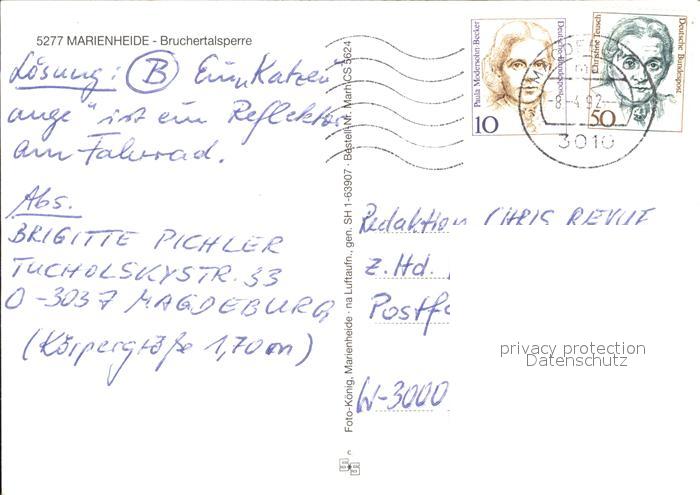 5277 MARIENHEIDE - Bruchertalsperre
Lösung: (B) Ein „Katzen
auge" ist ein Reflektor
am Fahrrad.
Abs.
BRIGITTE PICHLER
TUCHOLSKYSTR. 33
O-3037 MAGDEBURG
(Körpergröße 1,70 m)
Foto-König, Marienheide · na Luftaufn., gen. SH 1-63907 · Bestell-Nr. Marh CS 5624
Paula Modersohn-Becker
Deutsche Bundespost
10
Christine Teusch
Deutsche Bundespost
50
MAGDEBURG
-8.-4.92
3010
Redaktion CHRIS REVUE
z.Hd.
Postf
W-3000
privacy protection
Datenschutz